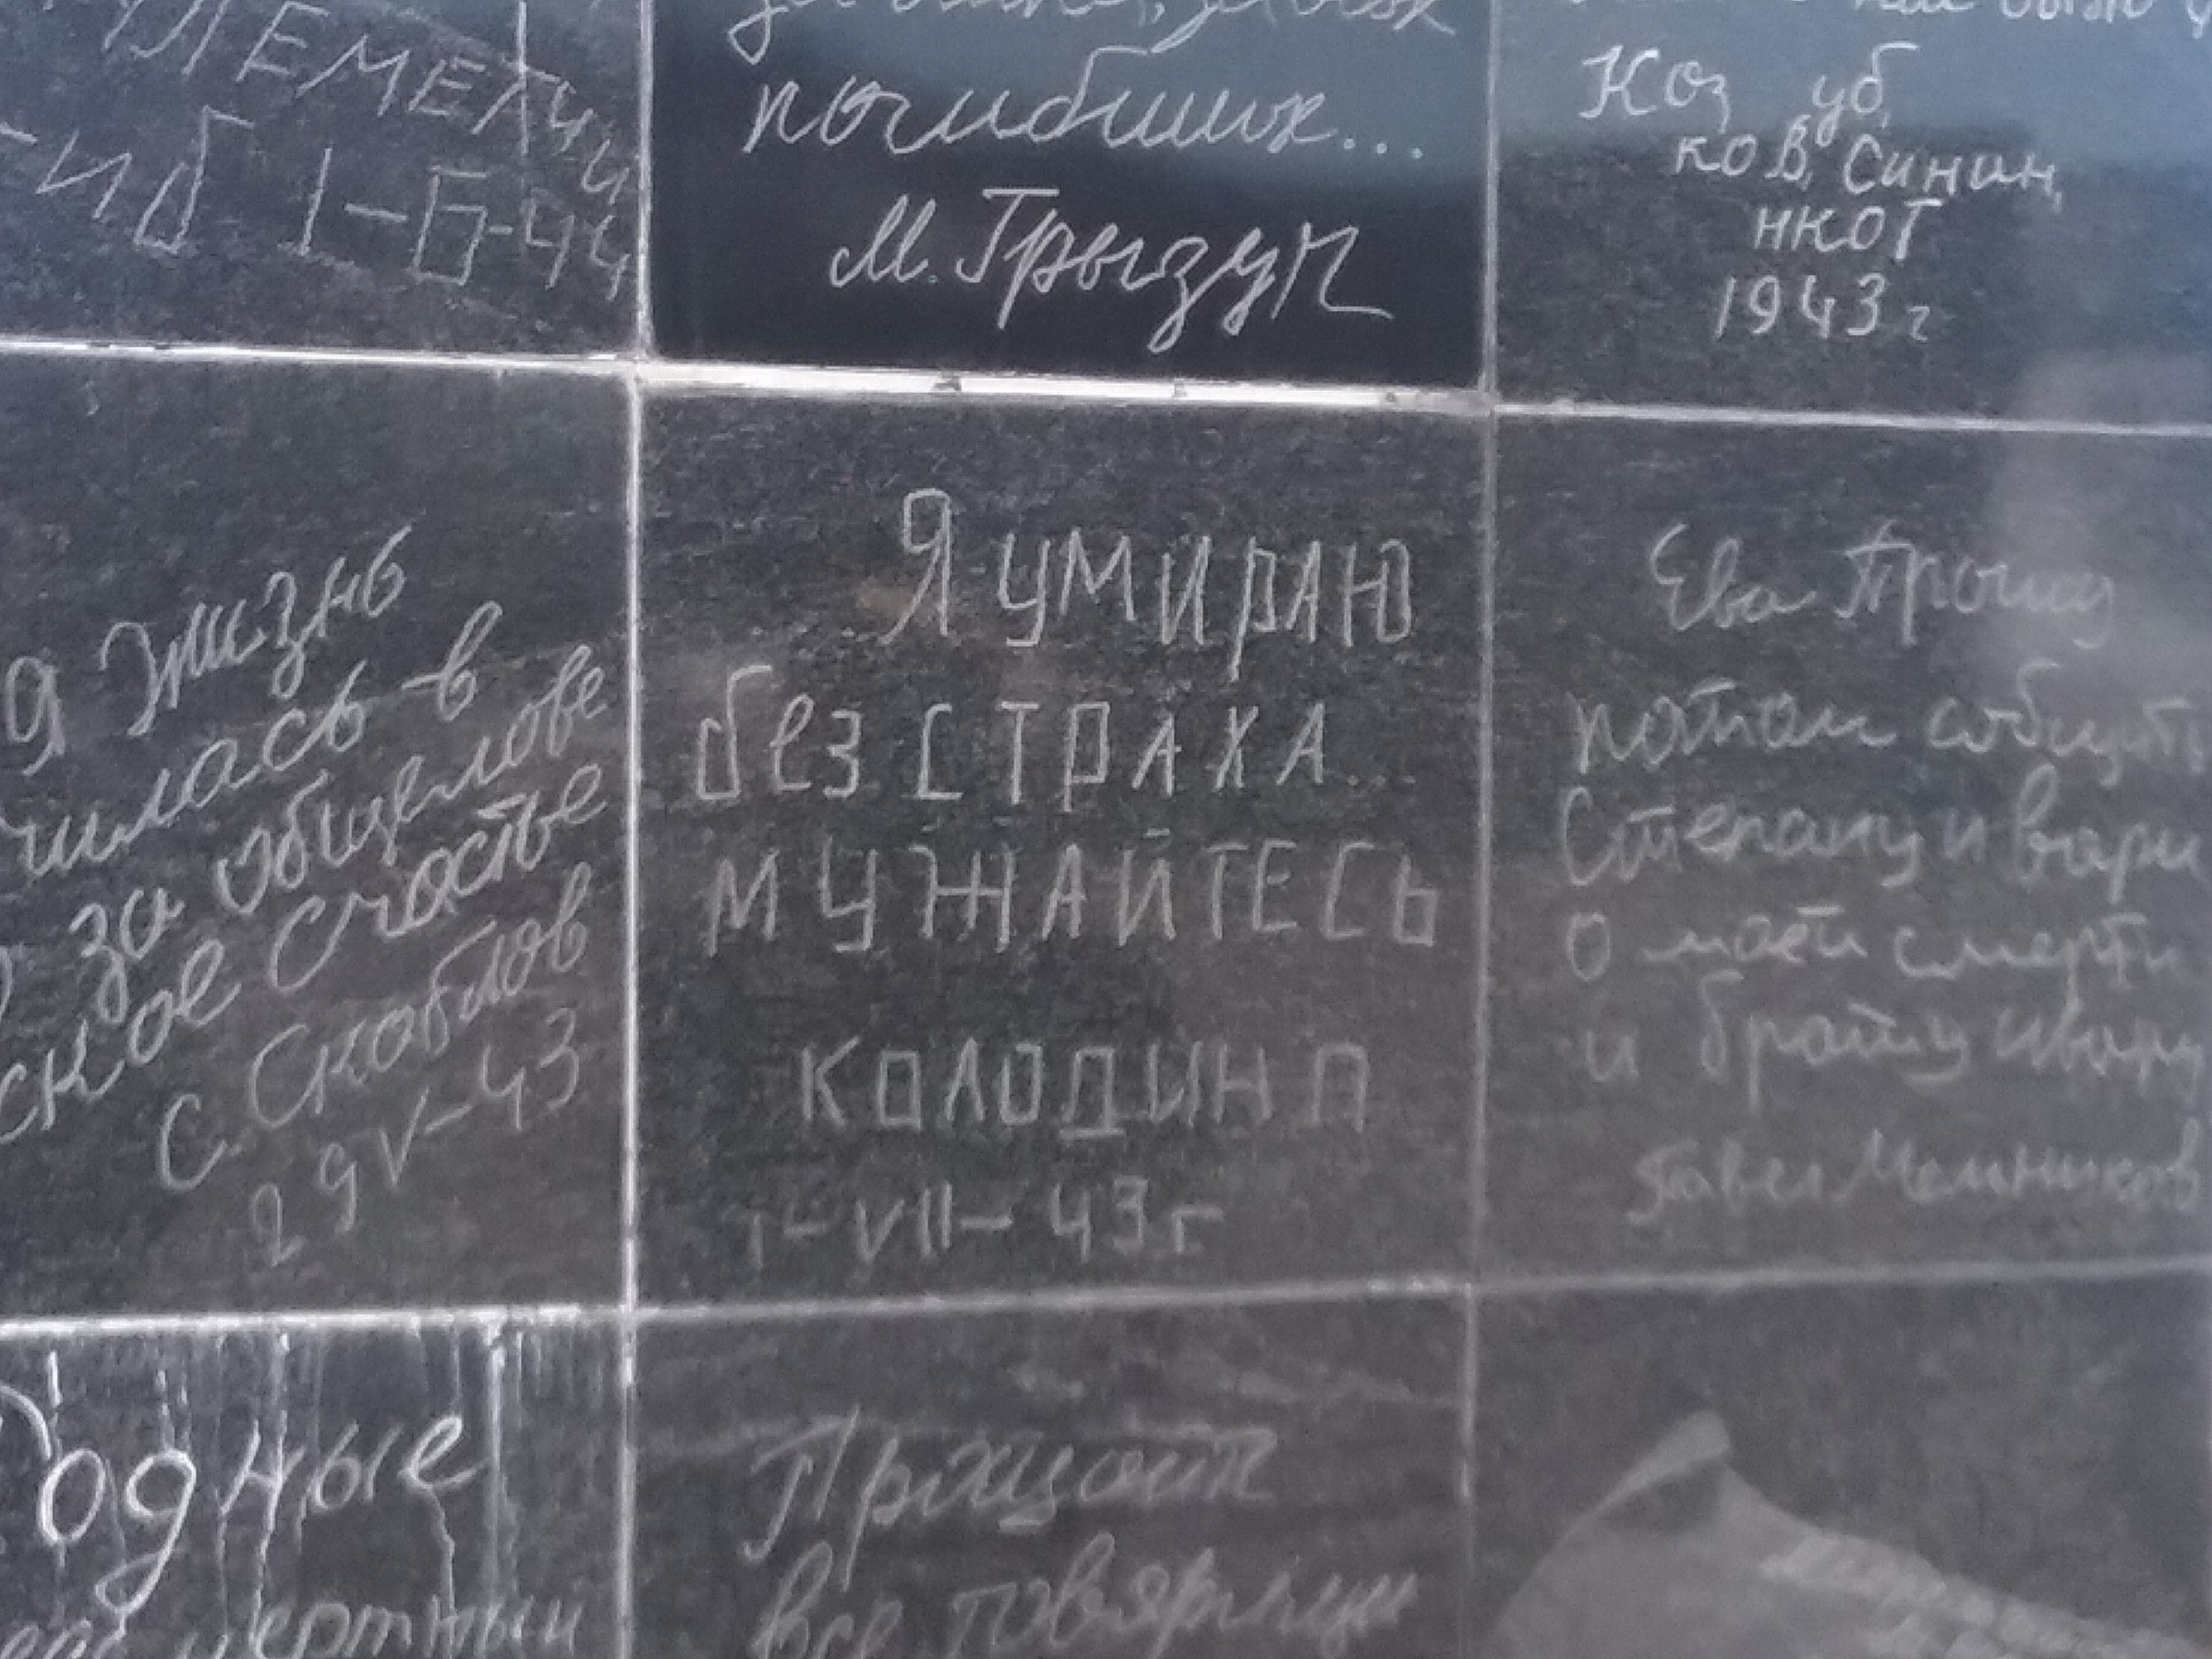 ГИБ 1-6-44
погибших...
М. Грызун
Коз уб,
ков, Синин,
нкот
1943 г
жизнь
илась в
за общелове
ское счастье
С. Скоблов
29 V-43
Я УМИРАЮ
без СТРАХА...
МУЖАЙТЕСЬ
КОЛОДИН П
1-VII-43 г
Ева Прошу
потом
Степану и вари
о маей смерти
и брату ивану
Павел Мельников
Родные
Прящайт
все товярищи